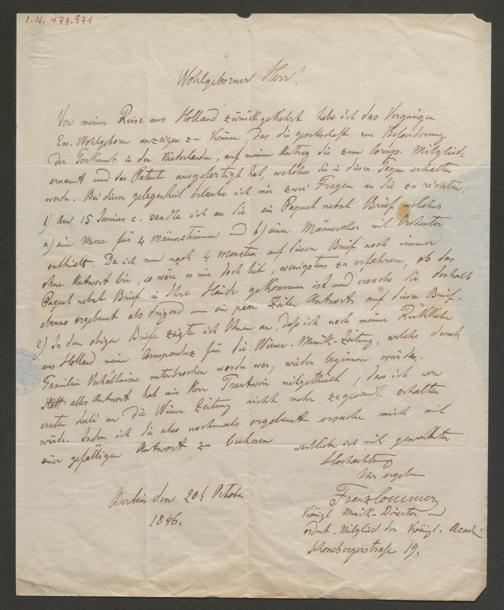 I.N. 177.971
Wohlgeborner Herr!
Von meiner Reise aus Holland zurückgekehrt habe ich das Vergnügen
Ew. Wohlgeborn anzeigen zu können das die Gesellschaft zur Beförderung
der Tonkunst in den Niederlanden, auf meinen Antrag Sie zum Mitglied
ernannt und das Patent ausgefertigt hat, welches Sie in diesen Tagen erhalten
werden. Bei dieser Gelegenheit erlaube ich mir zwei Fragen an Sie zu richten.
1) Am 15 Junius c. sendte ich an Sie ein Paquet nebst Brief, welches
a) eine Messe für 4 Männerstimmen und b) einen Männerchor mit Orchester
enthielt. Da ich nun nach 4 Monaten auf diesen Brief noch immer
ohne Antwort bin, so wäre es mir doch lieb, wenigstens zu erfahren, ob das
Paquet nebst Brief in Ihre Hände gekommen ist und ersuche Sie deshalb
ebenso ergebenst als dringend um ein paar Zeilen Antwort auf diesen Brief.
2) In dem obigen Briefe zeigte ich Ihnen an, daß ich nach meiner Rückkehr
aus Holland meine Correspondenz für die Wiener-Musik-Zeitung, welche durch
Familien Verhältnisse unterbrochen worden war, wieder beginnen würde.
Statt aller Antwort hat mir Herr Trautwein mitgetheilt, dass ich
ersten an die Wiener Zeitung nicht mehr zugesandt erhalten
würde. Indem ich Sie also nochmals ergebenst ersuche mich mit
einer gefälligen Antwort zu
ich mit
Hochachtung
Ihr ergebner
Franz Commer
Königl. Musik-Director
ordent. Mitglied der Königl. Academie
Schönebergerstraße 19.
Berlin den 20t October
1846.